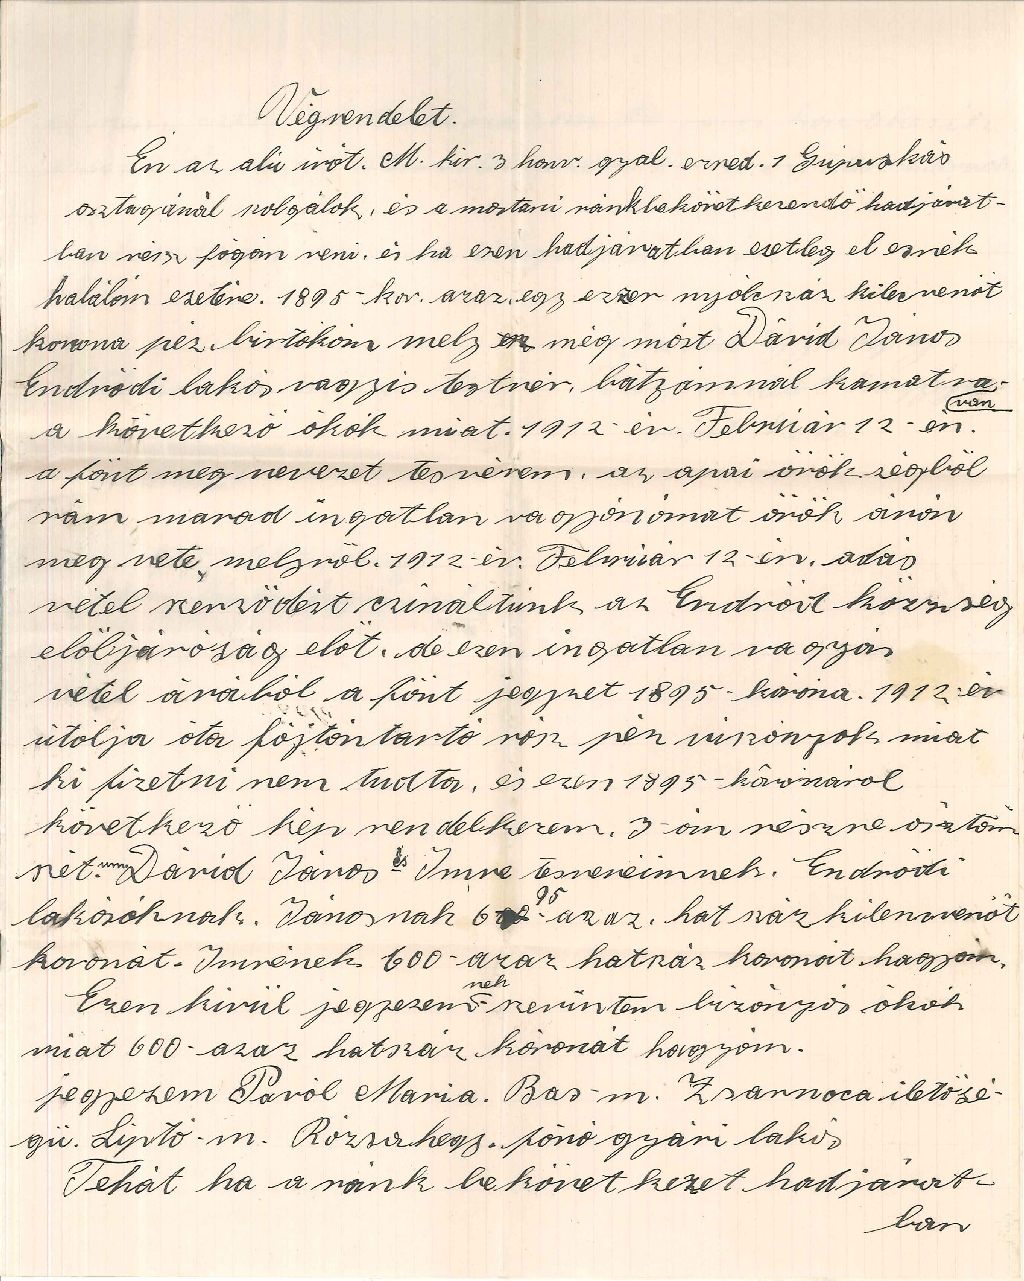 Végrendelet.
Én az alú irót. M. kir. 3 honv. gyal. ezred. 1 Gépuskás
osztagánál szolgálok, és a mostani ránkbekövetkezendő hadjárat-
ban rész fogom veni. és ha ezen hadjáratban esetleg el esnék
halálom esetére. 1895- kor. azaz. egy ezzer nyólcszáz kilecvenöt
korona péz. birtókom mely még móst Dávid János
Endrődi lakós vagyis testvér. bátyámnál kamatra.
van
a következő ókók miat. 1912-év. Február 12-én.
a fönt meg nevezet tesvérem. az apai örök ségből
rám marad ingatlan vagyónómat örök áron
meg vete, melyről. 1912-év. Február 12-én. adás
vétel szerződést czináltunk az Endrőd közzség
előljáróság előt. de ezen ingatlan vagyón
vétel árából a fönt jegyzet 1895- korona. 1912-év
utólja óta fojtóntartó rósz péz viszónyok miat
ki fizetni nem tudta, és ezen 1895- kórónáról
következő kép rendelkezem. 3-om részre ósztóm
szét. Dávid János és Imre tesvéreimnek. Endrődi
lakósóknak. Jánosnak 695- azaz. hat száz kilencvenöt
koronát. Imrének 600- azaz hatszáz koronát hagyom.
Ezen kivül jegyezemnek szerintem bizónyós ókók
miat 600- azaz hatszáz kórónát hagyóm.
jegyezem Pavól Maria. Bas-m. Zsarnoca iletősé-
gü. Liptó-m. Rózsahegy. fónó gyári lakós
Tehát ha a ránk bekövetkezet hadjárat-
ban